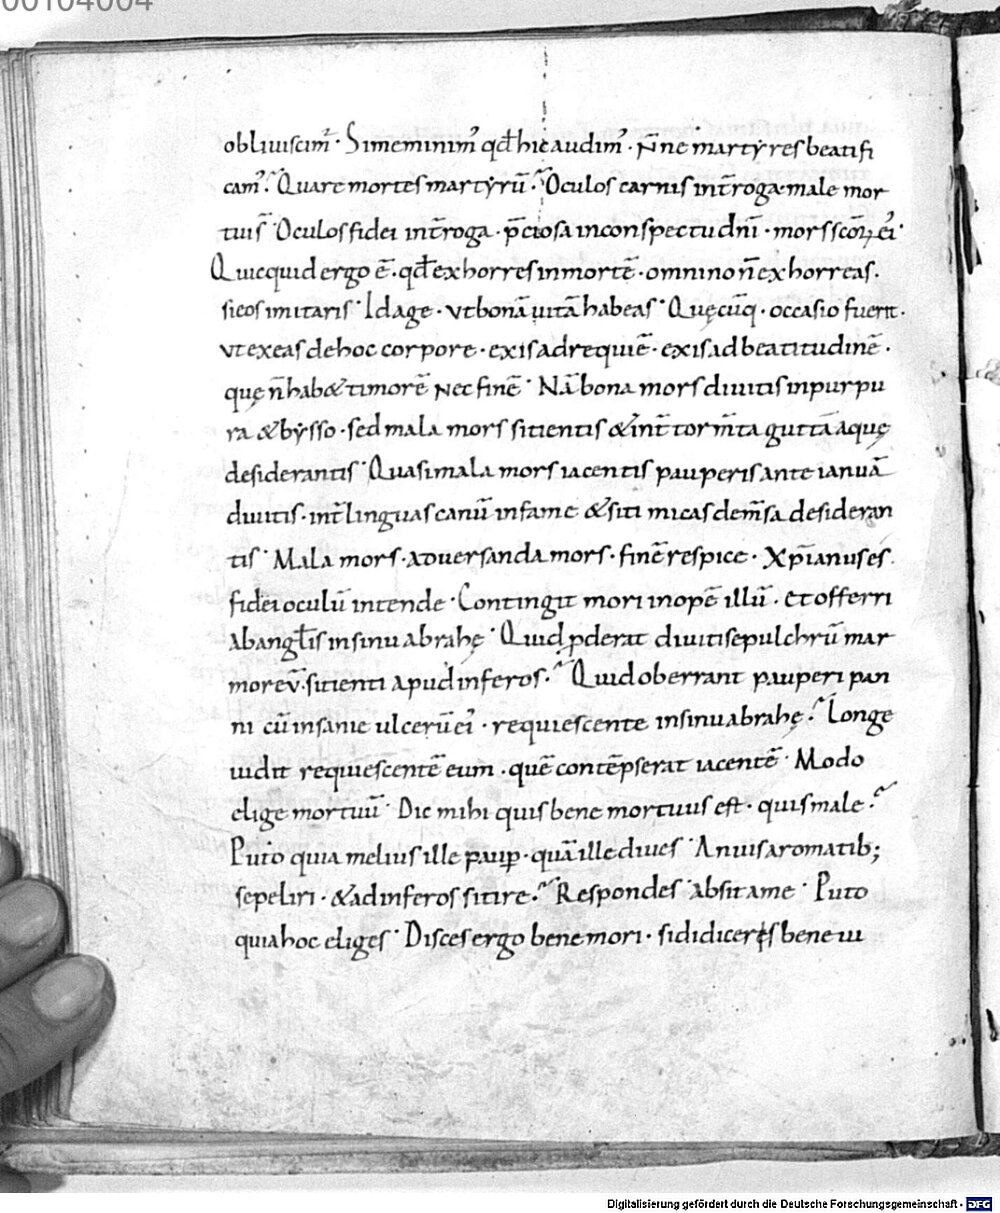 00104004
obliuiscim̄ · Si meminim᾽ qđ hic audim᾽ · N̄ne martyres beatifi
cam᾽? Quare mortes martyrū? Oculos carnis int̄roga · male mor
tui s̄ · Oculos fidei int̄roga · p̄ciosa in conspectu dn̄i · mors sc̄oꝝ ei᾽ ·
Quicquid ergo ē · qđ exhorres in mortē · omnino n̄ exhorreas ·
si eos imitaris · Id age · ut bonā uitā habeas · Quęcūq · occasio fuerit ·
ut exeas de hoc corpore · exis ad requiē · exis ad beatitudinē ·
quę n̄ hab& timorē nec finē · Nā bona mors diuitis in purpu
ra & bysso · sed mala mors sitientis & int̄ torm̄ta guttā aquę
desiderantis · Quasi mala mors iacentis pauperis ante ianuā
diuitis · int̄ linguas canū in fame & siti micas de m̄sa desideran
tis · Mala mors · aduersanda mors · finē respice · Xp̄ianus es ·
fidei oculū intende · Contingit mori inopē illū · et offerri
ab angl̄is in sinu abrahę · Quid ꝓderat diuiti sepulchrū mar
moreū · sitienti apud inferos ·? Quid oberrant pauperi pan
ni cū insanie ulcerū ei᾽ · requiescente in sinu abrahę? Longe
uidit requiescentē eum · quē contēpserat iacentē · Modo
elige mortuū · Dic mihi quis bene mortuus est · quis male?
Puto quia melius ille paup̱ · quā ille diues · An uis aromatib;
sepeliri · & ad inferos sitire? Respondes · absit a me · Puto
quia hoc eliges · Disces ergo bene mori · si didiceris bene ui
Digitalisierung gefördert durch die Deutsche Forschungsgemeinschaft - DFG